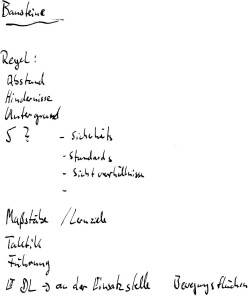 Bausteine
Regel:
Abstand
Hindernisse
Untergrund
5 ? - Sicherheits
- Standards
- Sichtverhältnisse
-
Maßstäbe / Lernziele
Taktik
Führung
DL → an der Einsatzstelle Bewegungsflächen